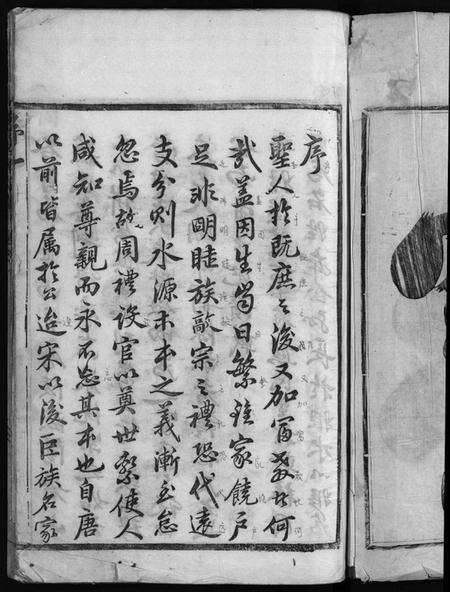 序
聖人於既庶之後又加富教者何
哉蓋因生齒日繁雖家饒戶
足非明睦族敵宗之禮恐代遠
支分則水源木本之義漸至怠
忽焉故周禮設官以奠世繫使人
咸知尊親而永不忘其本也自唐
以前皆屬於公迨宋以後臣族名家